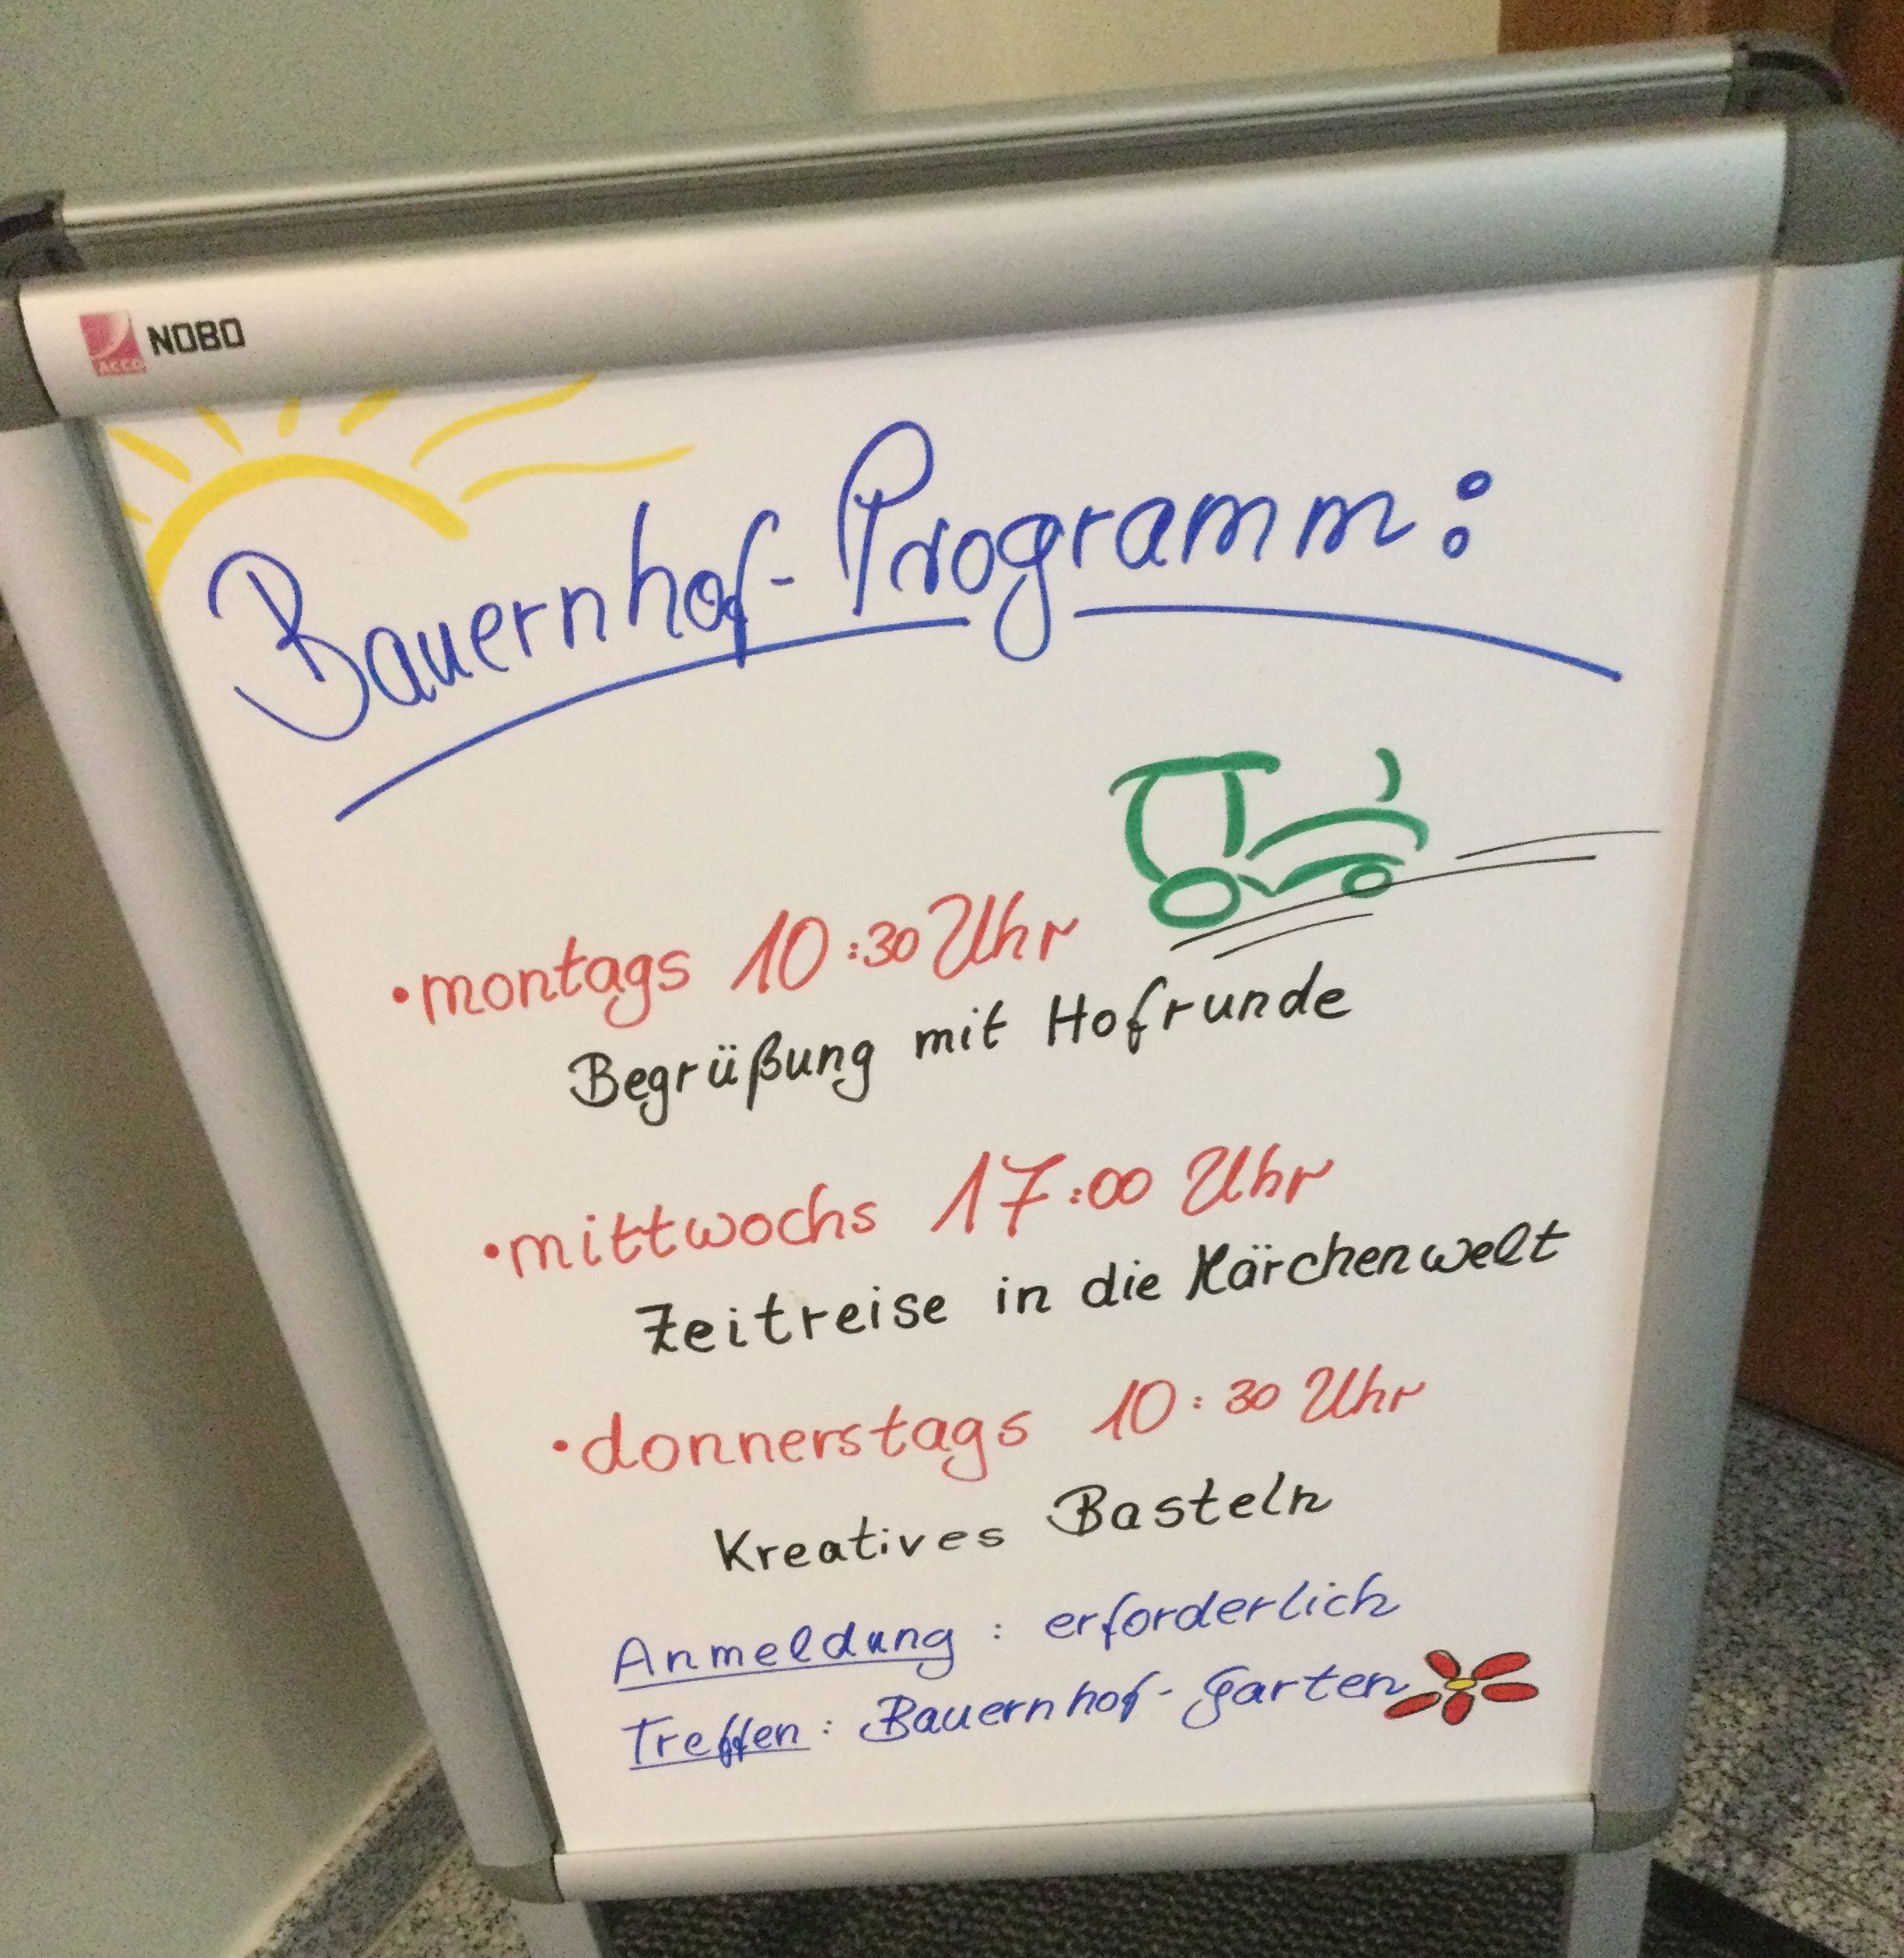 ACCO NOBO
Bauernhof-Programm:
•montags 10:30 Uhr
Begrüßung mit Hofrunde
•mittwochs 17:00 Uhr
Zeitreise in die Märchenwelt
•donnerstags 10:30 Uhr
Kreatives Basteln
Anmeldung: erforderlich
Treffen: Bauernhof-Garten